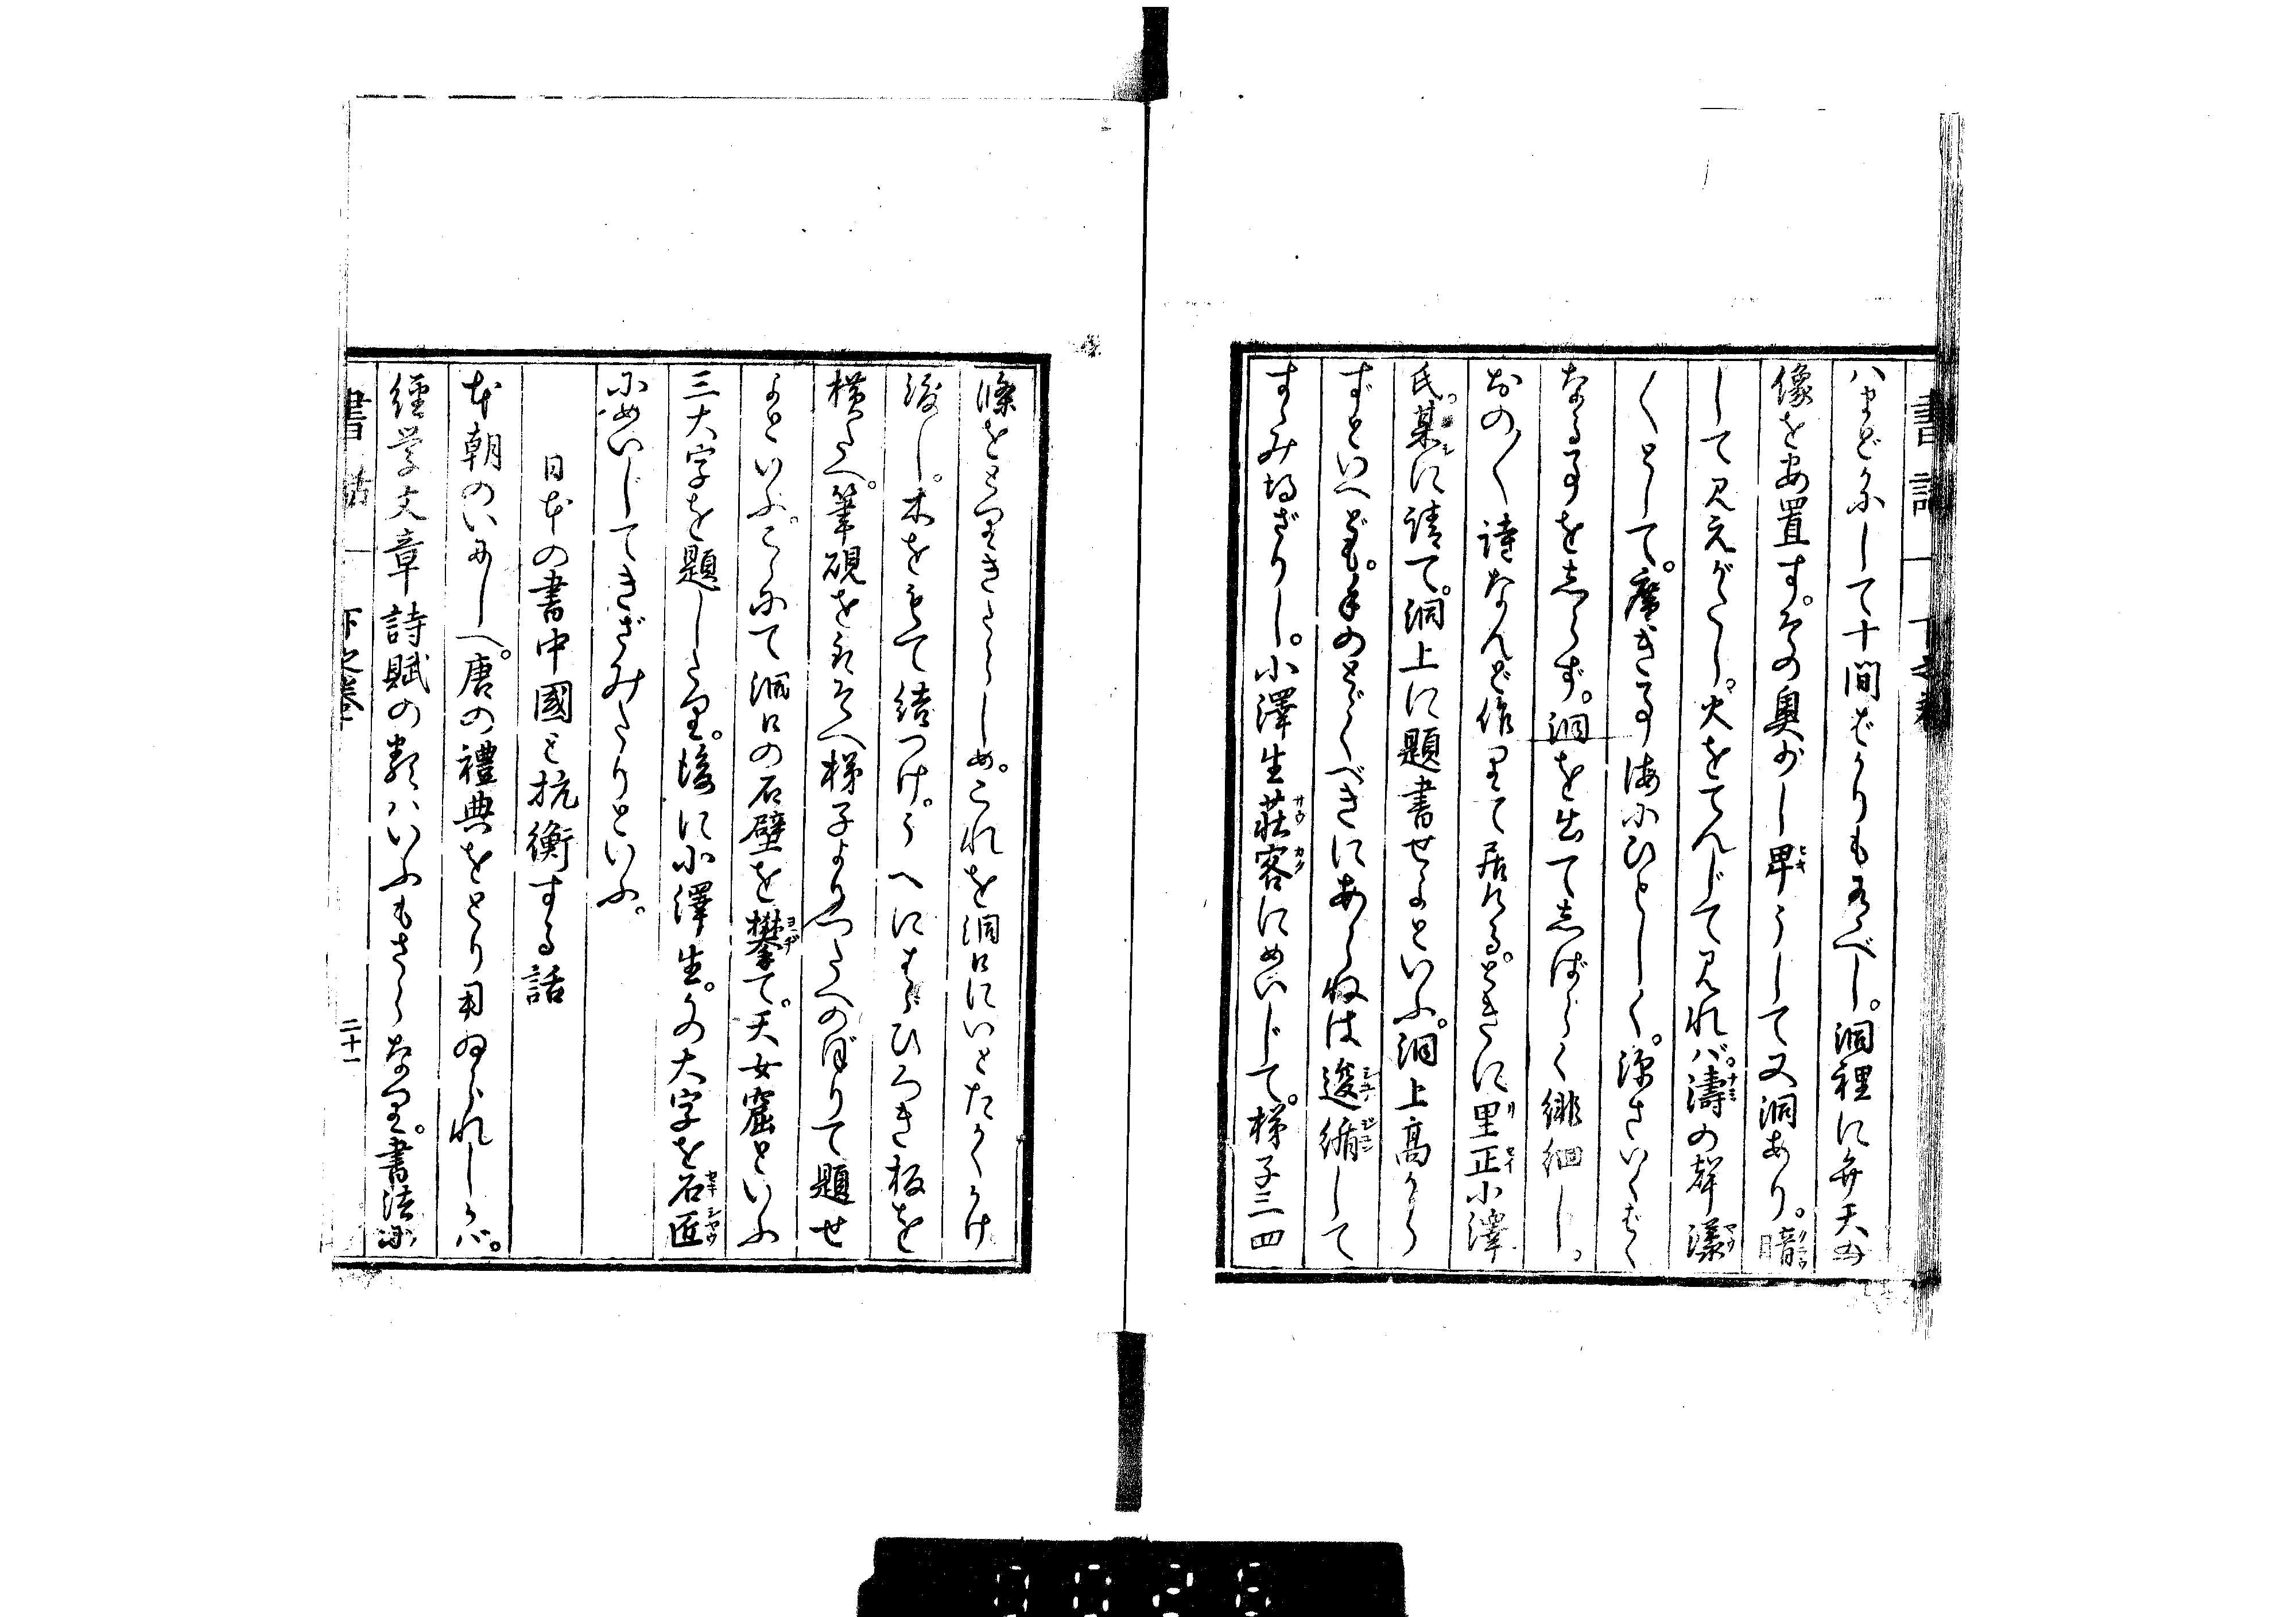 ハまどかにして十間ばかりもあるべし。洞裡に弁天の
像を安置す。その奥少し卑うして又洞あり。暗
して見えがたし。火をてんじて見れバ。濤の聲漾
〱として。廣き事海にひとしく。深さいくばく
なる事をしらず。洞を出てしばらく徘徊し。
おの〱詩なんど作りて居ける。ときに里正小澤
氏某に請て。洞上に題書せよといふ。洞上高から
ずといへども。手のとゞくべきにあらねば逡巡して
すゝみ得ざりし。小澤生荘客にめいじて。梯子三四
條をとりきたらしめ。これを洞口にいとたかくかけ
渡し。木をもて結つけ。うへにはゞひろき板を
横たへ。筆硯をそへ梯子よりつたへのぼりて題せ
よといふ。こゝにて洞口の石壁を攀て。天女窟といふ
三大字を題したり。後に小澤生。その大字を石匠
にめいじてきざみたりといふ。
日本の書中國と抗衡する話
本朝のいにしへ。唐の禮典をとり用ゐられしかバ。
經学文章詩賦の類ハいふもさらなり。書法亦
書話 下之巻 二十一